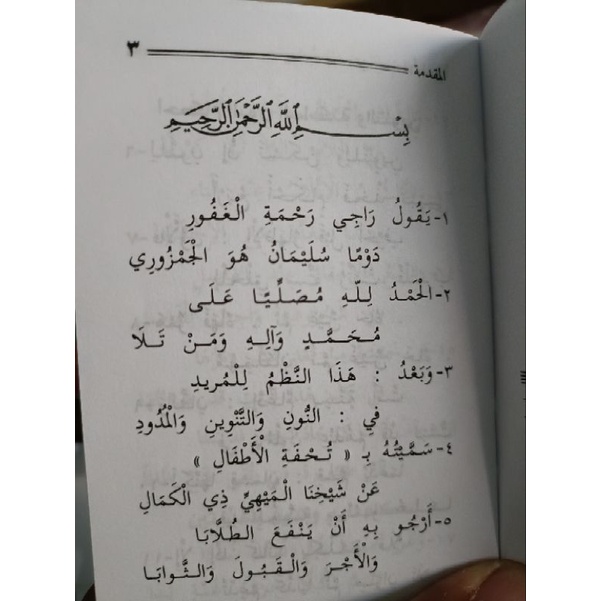 المقدمة ٣
بِسْمِ اللَّهِ الرَّحْمَٰنِ الرَّحِيمِ
١- يَقُولُ رَاجِي رَحْمَةِ الْغَفُورِ
دَوْمًا سُلَيْمَانُ هُوَ الْجَمْزُورِي
٢- الْحَمْدُ لِلَّهِ مُصَلِّيًا عَلَى
مُحَمَّدٍ وَآلِهِ وَمَنْ تَلَا
٣- وَبَعْدُ : هَذَا النَّظْمُ لِلْمُرِيدِ
فِي : النُّونِ وَالتَّنْوِينِ وَالْمُدُودِ
٤- سَمَّيْتُهُ بِـ « تُحْفَةِ الْأَطْفَالِ »
عَنْ شَيْخِنَا الْمَيْهِيِّ ذِي الْكَمَالِ
٥- أَرْجُو بِهِ أَنْ يَنْفَعَ الطُّلَّابَا
وَالْأَجْرَ وَالْقَبُولَ وَالثَّوابَا